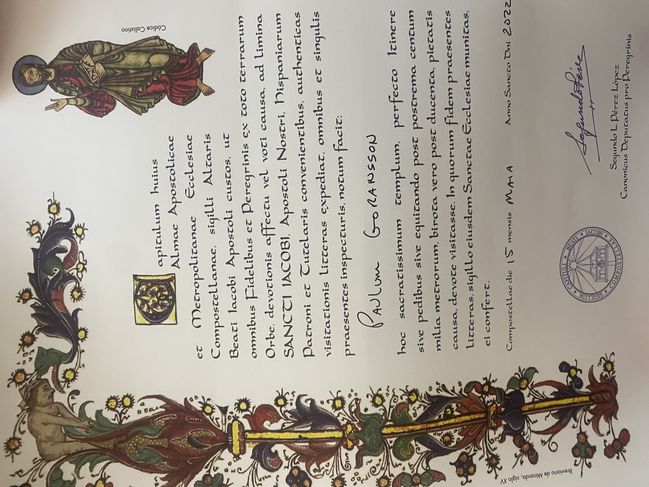 Breviario de Miranda, siglo XV
Capitulum huius
Almae Apostolicae
et Metropolitanae Ecclesiae
Compostellanae, sigilli Altaris
Beati Iacobi Apostoli custos, ut
omnibus Fidelibus et Peregrinis ex toto terrarum
Orbe, devotionis affectu vel voti causa, ad limina
SANCTI IACOBI, Apostoli Nostri, Hispaniarum
Patroni et Tutelaris convenientibus, authenticas
visitationis litteras expediat, omnibus et singulis
praesentes inspecturis, notum facit:
PAULUM GORANSSON
hoc sacratissimum templum, perfecto Itinere
sive pedibus sive equitando post postrema centum
milia metrorum, birota vero post ducenta, pietatis
causa, devote visitasse. In quorum fidem praesentes
litteras, sigillo eiusdem Sanctae Ecclesiae munitas,
ei confert.
Compostellae die 15 mensis MAIA Anno Sancto Dni 2022
Segundo L. Pérez López
Canonicus Deputatus pro Peregrinis
Códice Calixtino